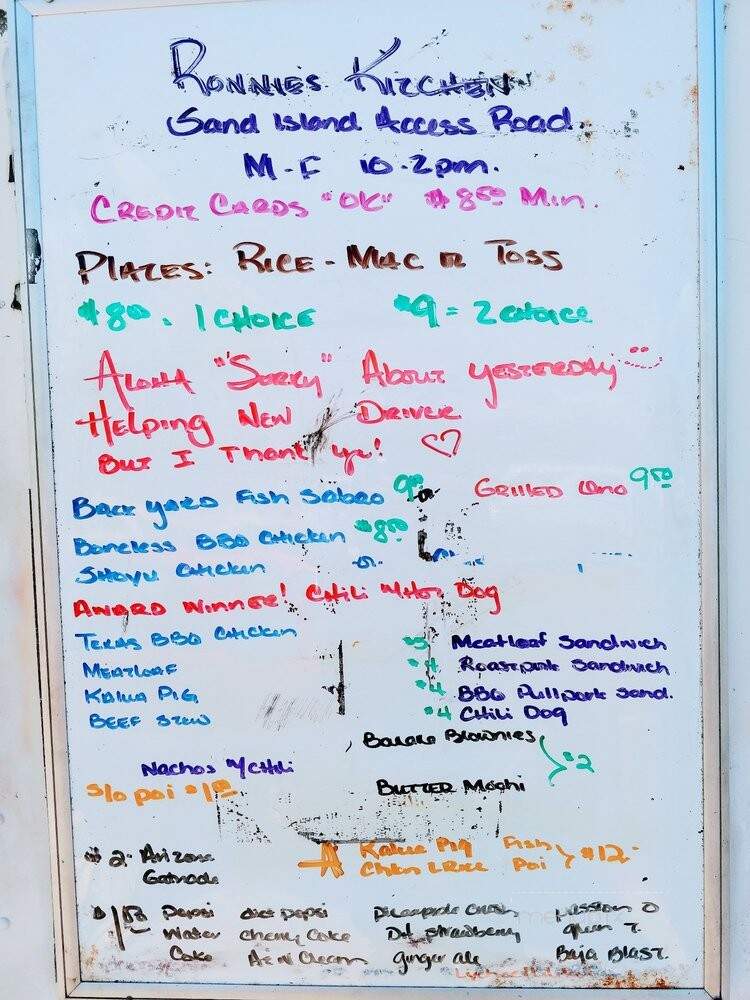 RONNIE'S KITCHEN
Sand Island Access Road
M-F 10-2pm.
CREDIT CARDS "OK" $8.50 Min.
PLATES: RICE - MAC or TOSS
$8.00 . 1 CHOICE $9 = 2 CHOICE
ALOHA "SORRY" ABOUT YESTERDAY
HELPING NEW DRIVER
BUT I Thank ya!
BACK YARD FISH 9.00 GRILLED 9.50
Boneless BBQ Chicken $8.50
SHOYU CHICKEN
AWARD WINNER! CHILI Dog
TEXAS BBQ CHICKEN
$5 Meatloaf Sandwich
MEATLOAF $4 Roastpork Sandwich
KALUA PIG $4 BBQ Pullpork Sand.
BEEF STEW $4 CHILI DOG
Banana Brownies $2
Nachos W/Chili
S/o poi BUTTER MOCHI
$2. Arizona
Gatorade
Kalua Pig Fish $12.
Chkn L Rice Poi
Pepsi diet pepsi pineapple Crush Passion O
Water cherry Coke Dt strawberry green T.
Coke A&W Cream ginger ale Baja BLAST.